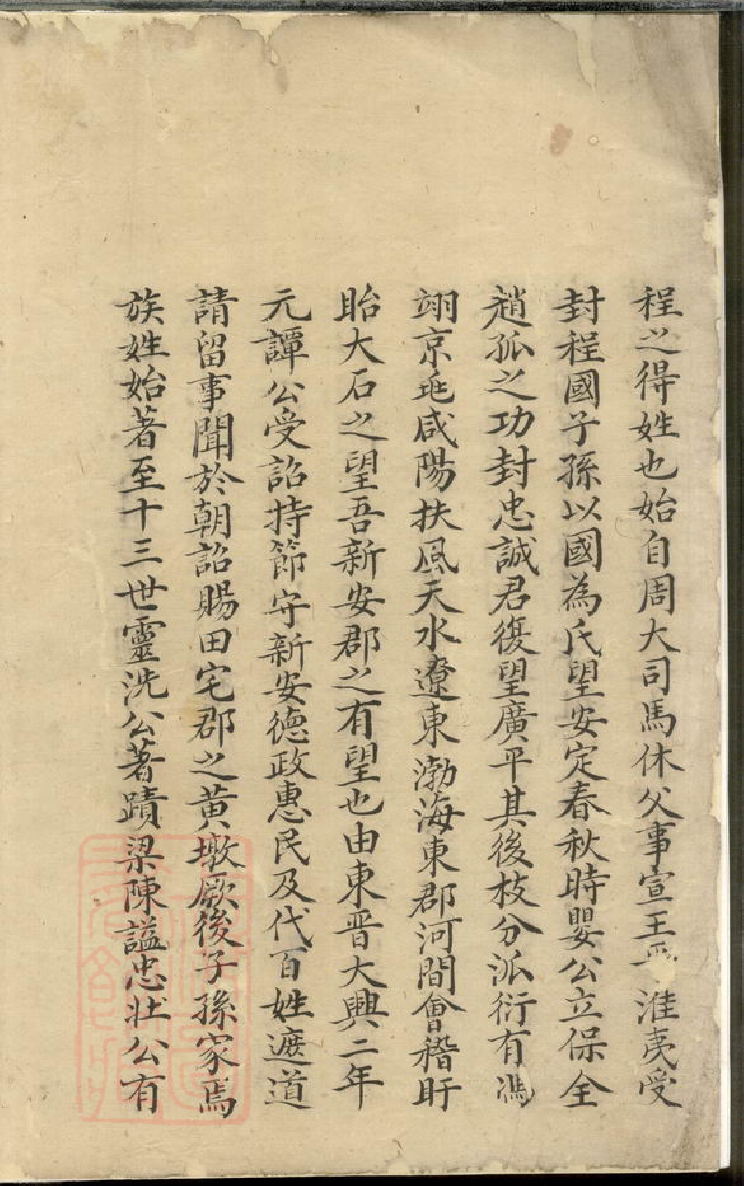 程之得姓也始自周大司馬休父事宣王平淮夷受
封程國子孫以國為氏望安定春秋時嬰公立保全
趙孤之功封忠誠君復望廣平其後枝分派衍有馮
翊京兆咸陽扶風天水遼東渤海東郡河間會稽盱
眙大石之望吾新安郡之有望也由東晋大興二年
元譚公受詔持節守新安德政惠民及代百姓遮道
請留事聞於朝詔賜田宅郡之黃墩厥後子孫家焉
族姓始著至十三世靈洗公著蹟梁陳謚忠壯公有